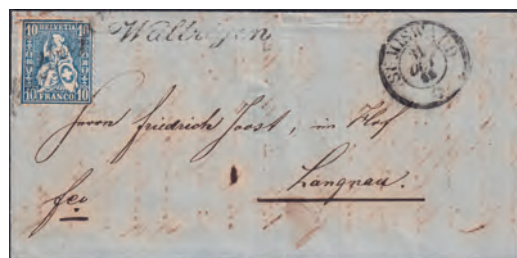 10 HELVETIA 10
10 FRANCO 10
Waltrigen
SUMISWALD
11
Herrn Friedrich Joost, im Hof
Langnau.
fco